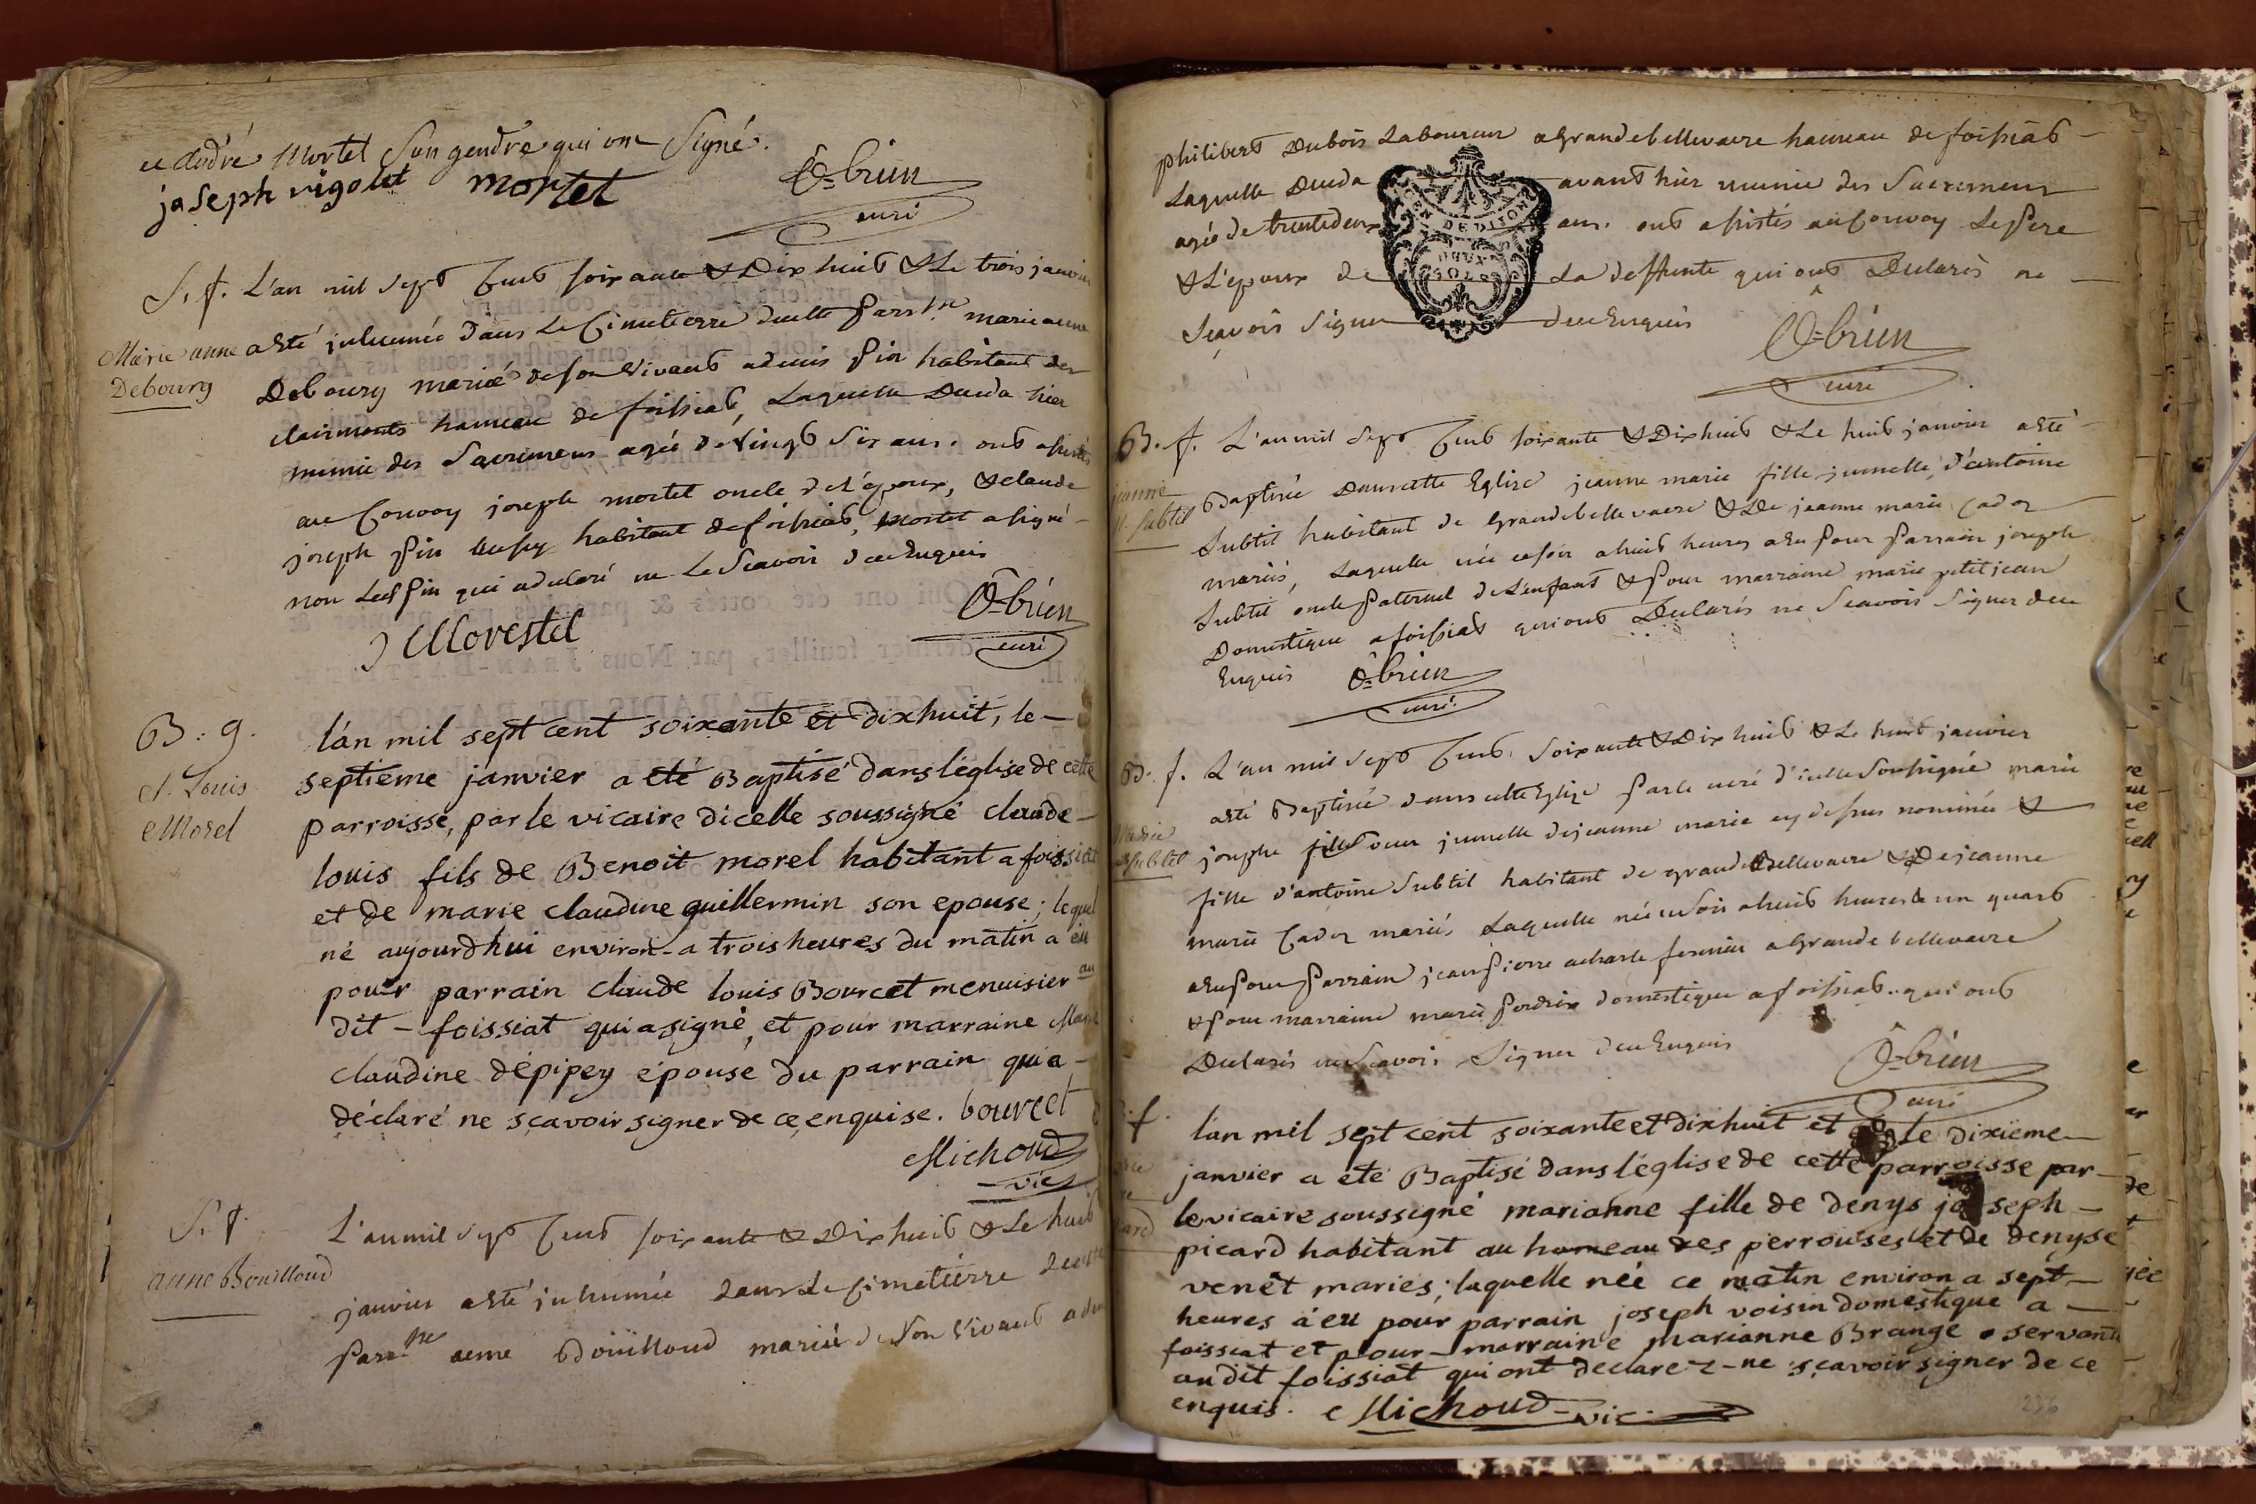 et André Mortel son gendre qui ont signé.
joseph vigolet mortel
O-brien
curé
S. f. L'an mil sept Cent soixante & Dix huit & Le trois janvier
Marie anne
Debourg
a été jnhumée dans Le Cimetierre de cette Parsse marie anne
Debourg mariée de son Vivant a denis Pin habitant des
clairmonts hameau de foissiat, Laquelle Deceda hier
munie des Sacremens agée de Vingt Six ans. ont assistés
au Convoy joseph mortel oncle de L'époux, & claude
joseph Pin habitant de foissiat, Mortel a signé
non Led Pin qui a declaré ne Le Scavoir de ce Enquis
J Morestel
O-brien
curé
B. g.
Cl. Louis
Morel
l'an mil sept cent soixante et dixhuit, le
septieme janvier a eté Baptisé dans l'eglise de cette
parroisse, par le vicaire d'icelle soussigné claude
louis fils de Benoit morel habitant a foissiat
et de marie claudine guillermin son epouse; lequel
né aujourdhui environ a trois heures du matin a eu
pour parrain claude louis Bourcet menuisier au
dit foissiat qui a signé, et pour marraine Marie
claudine dépipey épouse du parrain qui a
déclaré ne sçavoir signer de ce enquise. bourcet
Michoud
vic
S. f.
anne Bouilloud
L'an mil sept Cent soixante & Dix huit & Le huit
janvier a été jnhumée dans Le Cimetierre de cette
Parsse anne Boüilloud mariée de Son Vivant a
philibert Dubois Laboureur a Grandebellevavre hameau de foissiat
Laquelle Deceda avant hier munie des Sacremens
agée de trente deux ans. ont assistés au Convoy Le Pere
& L'epoux de La deffunte qui ont Declarés ne
Sçavoir Signer de ce Enquis
GEN. DE DIJON
DEUX
SOLS
O-brien
curé
B. f. L'an mil Sept Cent soixante & Dix huit & Le huit janvier a été
jeanne
M. Subtil
Baptisée dans cette Eglise jeanne marie fille jumelle d'antoine
Subtil habitant de Grandebellevavre & De jeanne marie Cadoz
mariés, Laquelle née ce soir a huit heures a eu Pour Parrain joseph
Subtil oncle Paternel de L'enfant & Pour marraine marie petitjean
Domestique a foissiat qui ont Declarés ne Scavoir Signer de ce
Enquis O-brien
curé
B. f. L'an mil Sept Cent Soixante & Dix huit & Le huit janvier
Marie
Subtil
a été Baptisée dans cette Eglise Par le curé d'icelle Soussigné marie
josephe fille soeur jumelle de jeanne marie cy dessus nommée &
fille d'antoine Subtil habitant de grande Bellevavre & De jeanne
marie Cadoz mariés Laquelle née ce Soir a huit heures & un quart
a eu Pour Parrain jean Pierre acharle fermier a Grande bellevavre
& Pour marraine marie Perdrix domestique a foissiat qui ont
Declarés ne Scavoir Signer de ce Enquis
O-brien
curé
f.
l'an mil sept cent soixante et dixhuit et le dixieme
janvier a eté Baptisé dans l'église de cette parroisse par
le vicaire soussigné marianne fille de denys joseph
picard habitant au hameau des perrouses et de denyse
venêt mariés; laquelle née ce matin environ a sept
heures a eu pour parrain joseph voisin domestique a
foissiat et pour marraine marianne Brange servante
au dit foissiat qui ont declarez ne sçavoir signer de ce
enquis. Michoud vic.
236